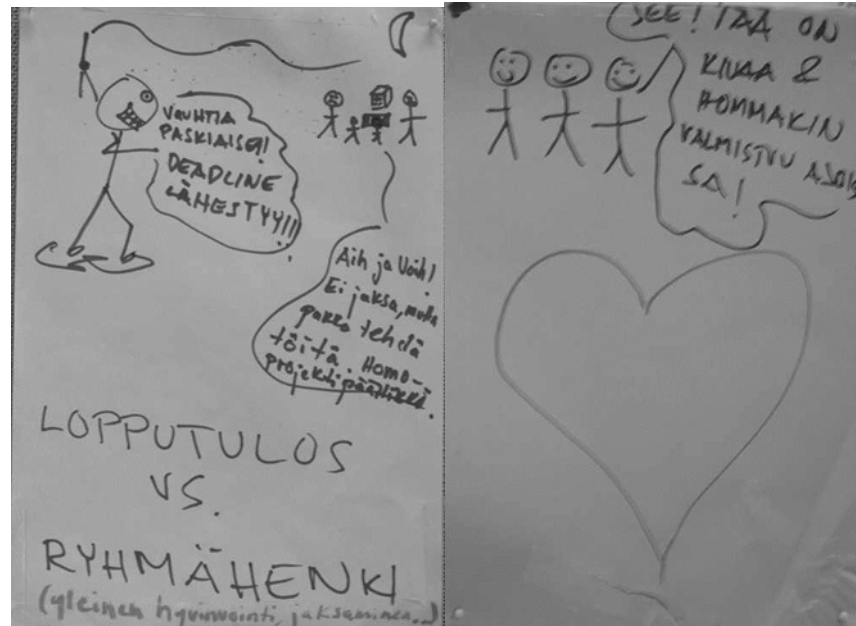 VAUHTIA
PASKIAISET!
DEADLINE
LÄHESTYY!!!
Aih ja Voih!
Ei jaksa, mutta
pakko tehdä
töitä. Homo-
projektipäällikkö.
LOPPUTULOS
VS.
RYHMÄHENKI
(yleinen hyvinvointi, jaksaminen...)
JEE! TÄÄ ON
KIVAA &
HOMMAKIN
VALMISTUU AJOIS
SA!